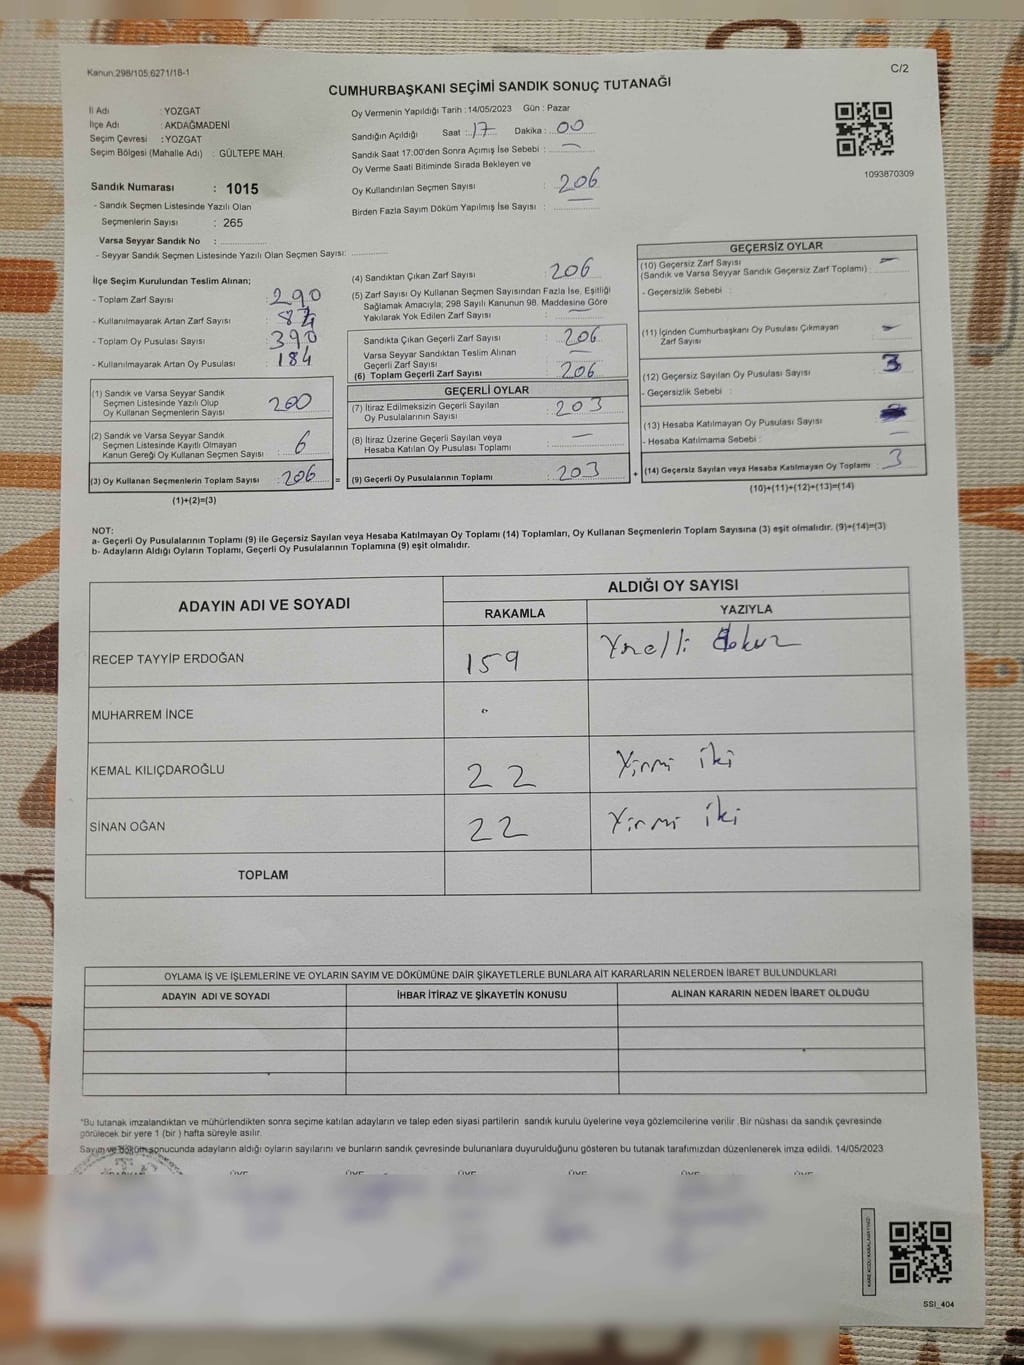 Kanun:298/105;6271/18-1
C/2
CUMHURBAŞKANI SEÇİMİ SANDIK SONUÇ TUTANAĞI
İl Adı : YOZGAT
İlçe Adı : AKDAĞMADENİ
Seçim Çevresi : YOZGAT
Seçim Bölgesi (Mahalle Adı) : GÜLTEPE MAH.
Sandık Numarası : 1015
- Sandık Seçmen Listesinde Yazılı Olan
Seçmenlerin Sayısı : 265
Varsa Seyyar Sandık No :
- Seyyar Sandık Seçmen Listesinde Yazılı Olan Seçmen Sayısı:
Oy Vermenin Yapıldığı Tarih : 14/05/2023 Gün : Pazar
Sandığın Açıldığı Saat : 17 Dakika : 00
Sandık Saat 17.00'den Sonra Açımış İse Sebebi : —
Oy Verme Saati Bitiminde Sırada Bekleyen ve
Oy Kullandırılan Seçmen Sayısı : 206
Birden Fazla Sayım Döküm Yapılmış İse Sayısı : —
1093870309
İlçe Seçim Kurulundan Teslim Alınan;
- Toplam Zarf Sayısı : 290
- Kullanılmayarak Artan Zarf Sayısı : 84
- Toplam Oy Pusulası Sayısı : 390
- Kullanılmayarak Artan Oy Pusulası : 184
(1) Sandık ve Varsa Seyyar Sandık
Seçmen Listesinde Yazılı Olup
Oy Kullanan Seçmenlerin Sayısı : 200
(2) Sandık ve Varsa Seyyar Sandık
Seçmen Listesinde Kayıtlı Olmayan
Kanun Gereği Oy Kullanan Seçmen Sayısı : 6
(3) Oy Kullanan Seçmenlerin Toplam Sayısı : 206
(1)+(2)=(3)
(4) Sandıktan Çıkan Zarf Sayısı : 206
(5) Zarf Sayısı Oy Kullanan Seçmen Sayısından Fazla İse, Eşitliği
Sağlamak Amacıyla; 298 Sayılı Kanunun 98. Maddesine Göre
Yakılarak Yok Edilen Zarf Sayısı : —
Sandıkta Çıkan Geçerli Zarf Sayısı : 206
Varsa Seyyar Sandıktan Teslim Alınan
Geçerli Zarf Sayısı : —
(6) Toplam Geçerli Zarf Sayısı : 206
GEÇERLİ OYLAR
(7) İtiraz Edilmeksizin Geçerli Sayılan
Oy Pusulalarının Sayısı : 203
(8) İtiraz Üzerine Geçerli Sayılan veya
Hesaba Katılan Oy Pusulası Toplamı : —
= (9) Geçerli Oy Pusulalarının Toplamı : 203
GEÇERSİZ OYLAR
(10) Geçersiz Zarf Sayısı —
(Sandık ve Varsa Seyyar Sandık Geçersiz Zarf Toplamı) :
- Geçersizlik Sebebi :
(11) İçinden Cumhurbaşkanı Oy Pusulası Çıkmayan
Zarf Sayısı : —
(12) Geçersiz Sayılan Oy Pusulası Sayısı : 3
- Geçersizlik Sebebi :
(13) Hesaba Katılmayan Oy Pusulası Sayısı :
- Hesaba Katılmama Sebebi : —
+ (14) Geçersiz Sayılan veya Hesaba Katılmayan Oy Toplamı : 3
(10)+(11)+(12)+(13)=(14)
NOT:
a- Geçerli Oy Pusulalarının Toplamı (9) ile Geçersiz Sayılan veya Hesaba Katılmayan Oy Toplamı (14) Toplamları, Oy Kullanan Seçmenlerin Toplam Sayısına (3) eşit olmalıdır. (9)+(14)=(3)
b- Adayların Aldığı Oyların Toplamı, Geçerli Oy Pusulalarının Toplamına (9) eşit olmalıdır.
ADAYIN ADI VE SOYADI
ALDIĞI OY SAYISI
RAKAMLA YAZIYLA
RECEP TAYYİP ERDOĞAN 159 Yüzelli dokuz
MUHARREM İNCE
KEMAL KILIÇDAROĞLU 22 Yirmi iki
SİNAN OĞAN 22 Yirmi iki
TOPLAM
OYLAMA İŞ VE İŞLEMLERİNE VE OYLARIN SAYIM VE DÖKÜMÜNE DAİR ŞİKAYETLERLE BUNLARA AİT KARARLARIN NELERDEN İBARET BULUNDUKLARI
ADAYIN ADI VE SOYADI İHBAR İTİRAZ VE ŞİKAYETİN KONUSU ALINAN KARARIN NEDEN İBARET OLDUĞU
*Bu tutanak imzalandıktan ve mühürlendikten sonra seçime katılan adayların ve talep eden siyasi partilerin sandık kurulu üyelerine veya gözlemcilerine verilir .Bir nüshası da sandık çevresinde
görülecek bir yere 1 (bir ) hafta süreyle asılır.
Sayım ve döküm sonucunda adayların aldığı oyların sayılarını ve bunların sandık çevresinde bulunanlara duyurulduğunu gösteren bu tutanak tarafımızdan düzenlenerek imza edildi. 14/05/2023
ÜYE ÜYE ÜYE ÜYE ÜYE ÜYE
SSI_404